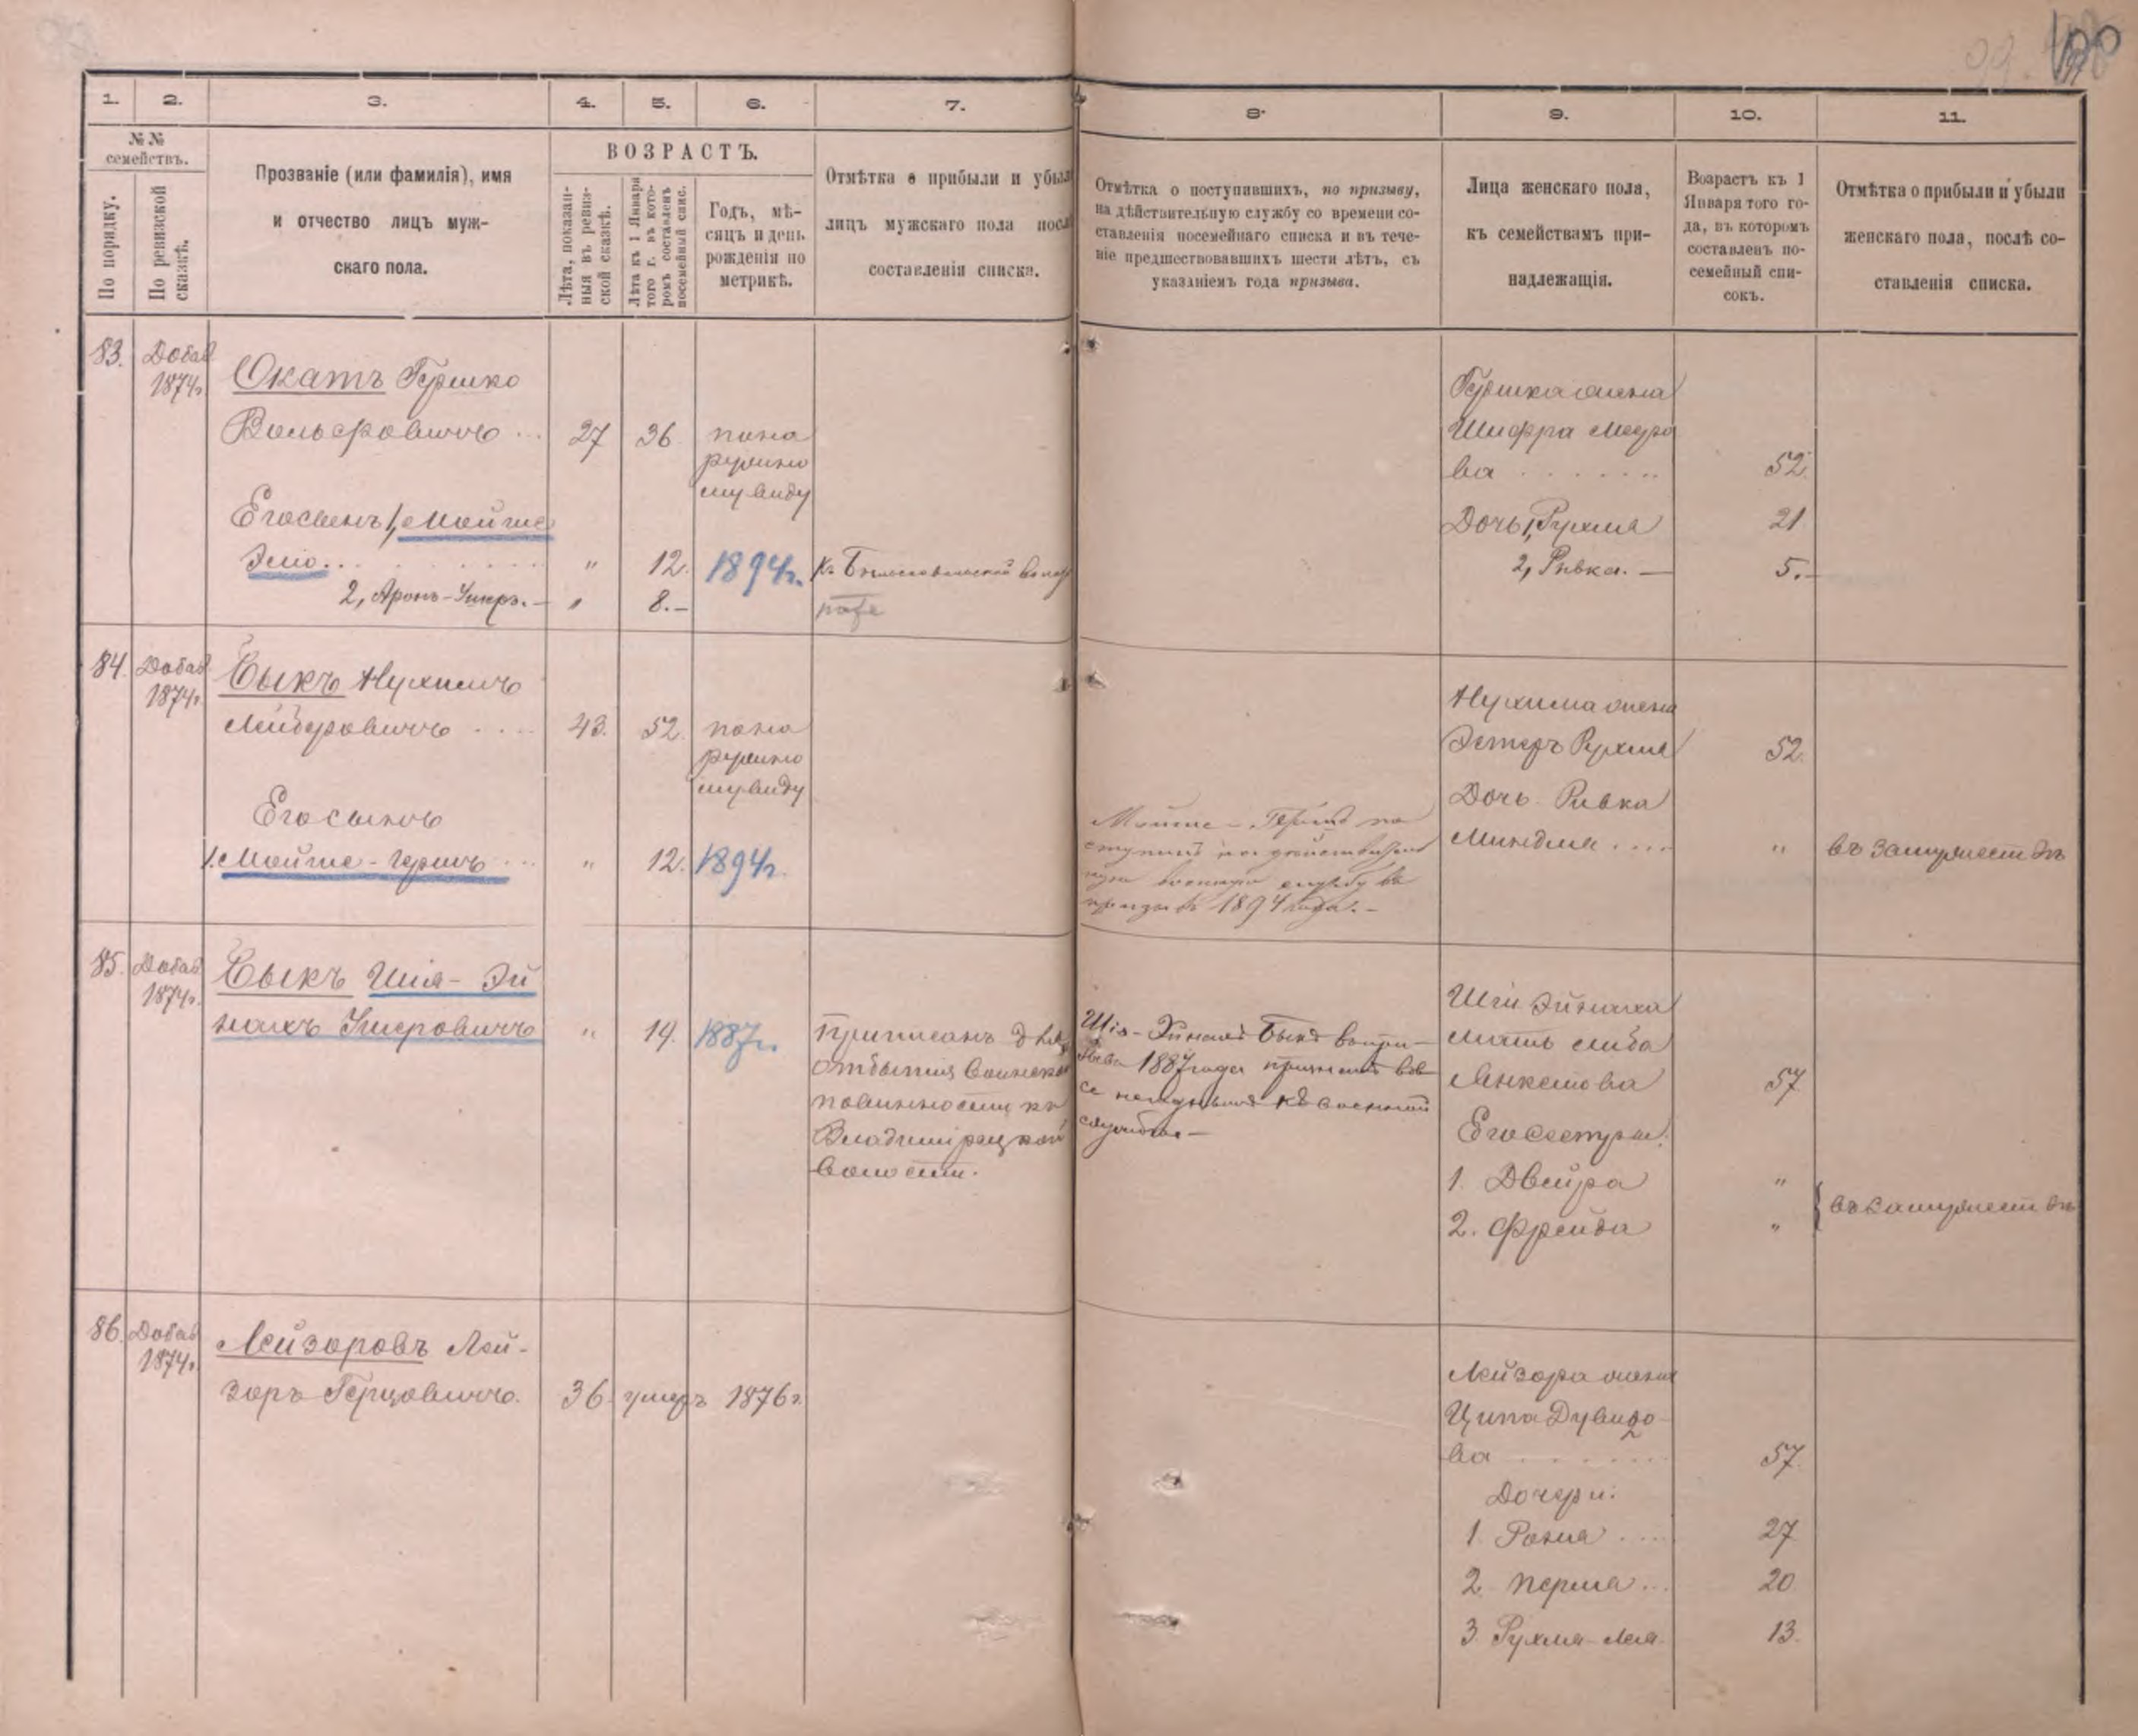 1.
2.
3.
4.
5.
6.
7.
8.
9.
10.
11.
№№ семействъ.
По порядку.
По ревизской сказкѣ.
Прозваніе (или фамилія), имя
и отчество лицъ муж-
скаго пола.
ВОЗРАСТЪ.
Лѣта, показан-
ныя въ ревиз-
ской сказкѣ.
Лѣта къ 1 Января
того г. въ кото-
ромъ составленъ
посемейный спис.
Годъ, мѣ-
сяцъ и день
рожденія по
метрикѣ.
Отмѣтка о прибыли и убыл
лицъ мужскаго пола посл
составленія списка.
Отмѣтка о поступавшихъ, по призыву,
на дѣйствительную службу со времени со-
ставленія посемейнаго списка и въ тече-
ніе предшествовавшихъ шести лѣтъ, съ
указаніемъ года призыва.
Лица женскаго пола,
къ семействамъ при-
надлежащія.
Возрастъ къ 1
Января того го-
да, въ которомъ
составленъ по-
семейный спи-
сокъ.
Отмѣтка о прибыли и убыли
женскаго пола, послѣ со-
ставленія списка.
83. Добав
1874г.
Окатъ Гершко
Вольфовичъ ... 27 36. по на
ружно
му виду
Его сынъ 1, Мойше
Эліо... " 12. 1894г.
2, Аронъ-Умеръ.- " 8.-
Гершка жена
Шифра Мееро
ва ....... 52.
Дочь 1, Рухля 21
2, Ривка.— 5.-
84. Добав
1874г.
Быкъ Нухимъ
Лейберовичъ .... 43. 52. по на
ружно
му виду
Его сынъ
1. Мойше-Гершъ ... " 12. 1894г.
Мойше-Гершъ по
ступилъ на дѣйствитель
ную военную службу въ
призывъ 1894 года.-
Нухима жена
Эстеръ Рухля 52.
Дочь Ривка
Миндля .... " въ замужествѣ
85. Добав
1874г.
Быкъ Шія-Эй
нахъ Умеровичъ " 14. 1887г.
Приписанъ для
отбытія воинской
повинности къ
Владимірецкой
волости.
Шія-Эйнахъ Быкъ въ при-
зывъ 1887 года признанъ вов
се негоднымъ къ военной
службѣ.—
Шіи Эйнаха
мать Либа
Анкелова 57
Его сестры:
1. Двейра "
2. Фрейда " въ замужествѣ
86. Добав
1874г.
Лейзоровъ Лей-
зоръ Герцовичъ. 36. умеръ 1876г.
Лейзора жена
Ципа Дувидо-
ва ....... 57.
Дочери:
1. Роня .... 27
2. Перля ... 20.
3. Рухля-Лея. 13.